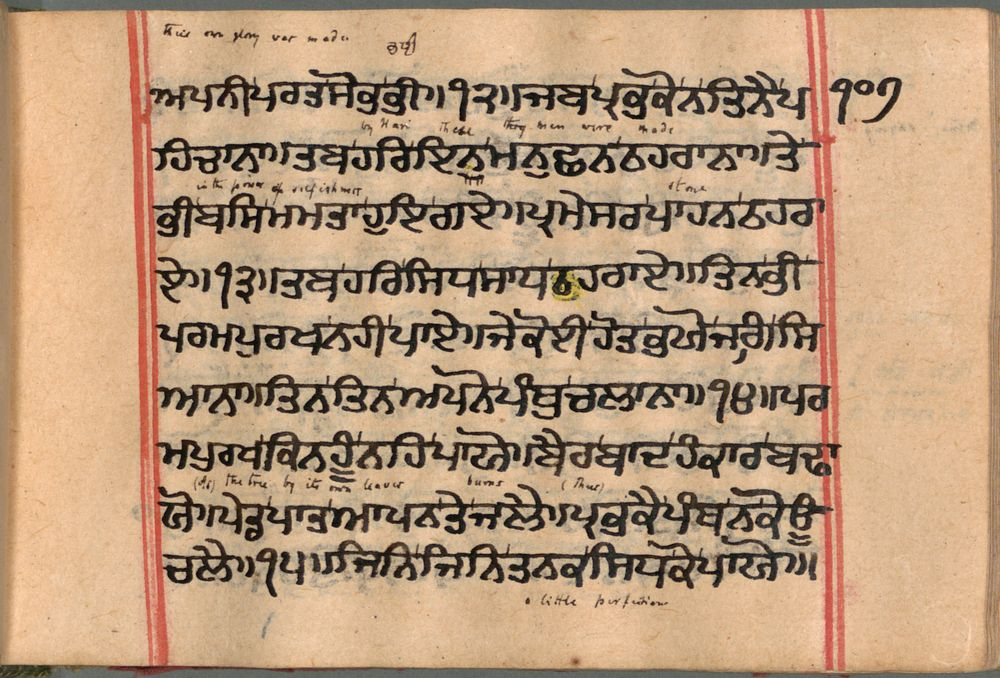 their own glory was made
ਅਪਨੀਪਰਤਸੋਭੁਭੀ॥੧੨॥ਜਬਪ੍ਰਭੁਕੋਨਤਿਨੈਪ ੧੦੭
by Hari these they men were made
ਹਿਚਾਨਾ॥ਤਬਹਰਿਇਨੁਮਨੁਛਨਠਹਰਾਨਾ॥ਤੇ
in the power of selfishness stone
ਭੀਬਸਿਮਮਤਾਹੁਇਗਏ॥ਪ੍ਰਮੇਸਰਪਾਹਨਠਹਰਾ
ਏ॥੧੩॥ਤਬਹਰਿਸਿਧਸਾਧਠਹਰਾਏ॥ਤਿਨਭੀ
ਪਰਮਪੁਰਖਨਹੀਪਾਏ॥ਜੇਕੋਈਹੋਤਭੁਯੋਜਗੀਸਿ
ਆਨਾ॥ਤਿਨਤਿਨਅਪਨੋਪੰਥੁਚਲਾਨਾ॥੧੪॥ਪਰ
ਮਪੁਰਖਕਿਨਹੂੰਨਹਿਪਾਯੋ॥ਬੈਰਬਾਦਹੰਕਾਰਬਢਾ
(As) the tree by its own leaves burns (Thus)
ਯੋ॥ਪੇਡੁਪਾਤਆਪਨਤੇਜਲੈ॥ਪ੍ਰਭੁਕੈਪੰਥਨਕੋਊ
ਚਲੈ॥੧੫॥ਜਿਨਿਜਿਨਿਤਨਕਸਿਧਕੋਪਾਯੋ॥
a little perfection